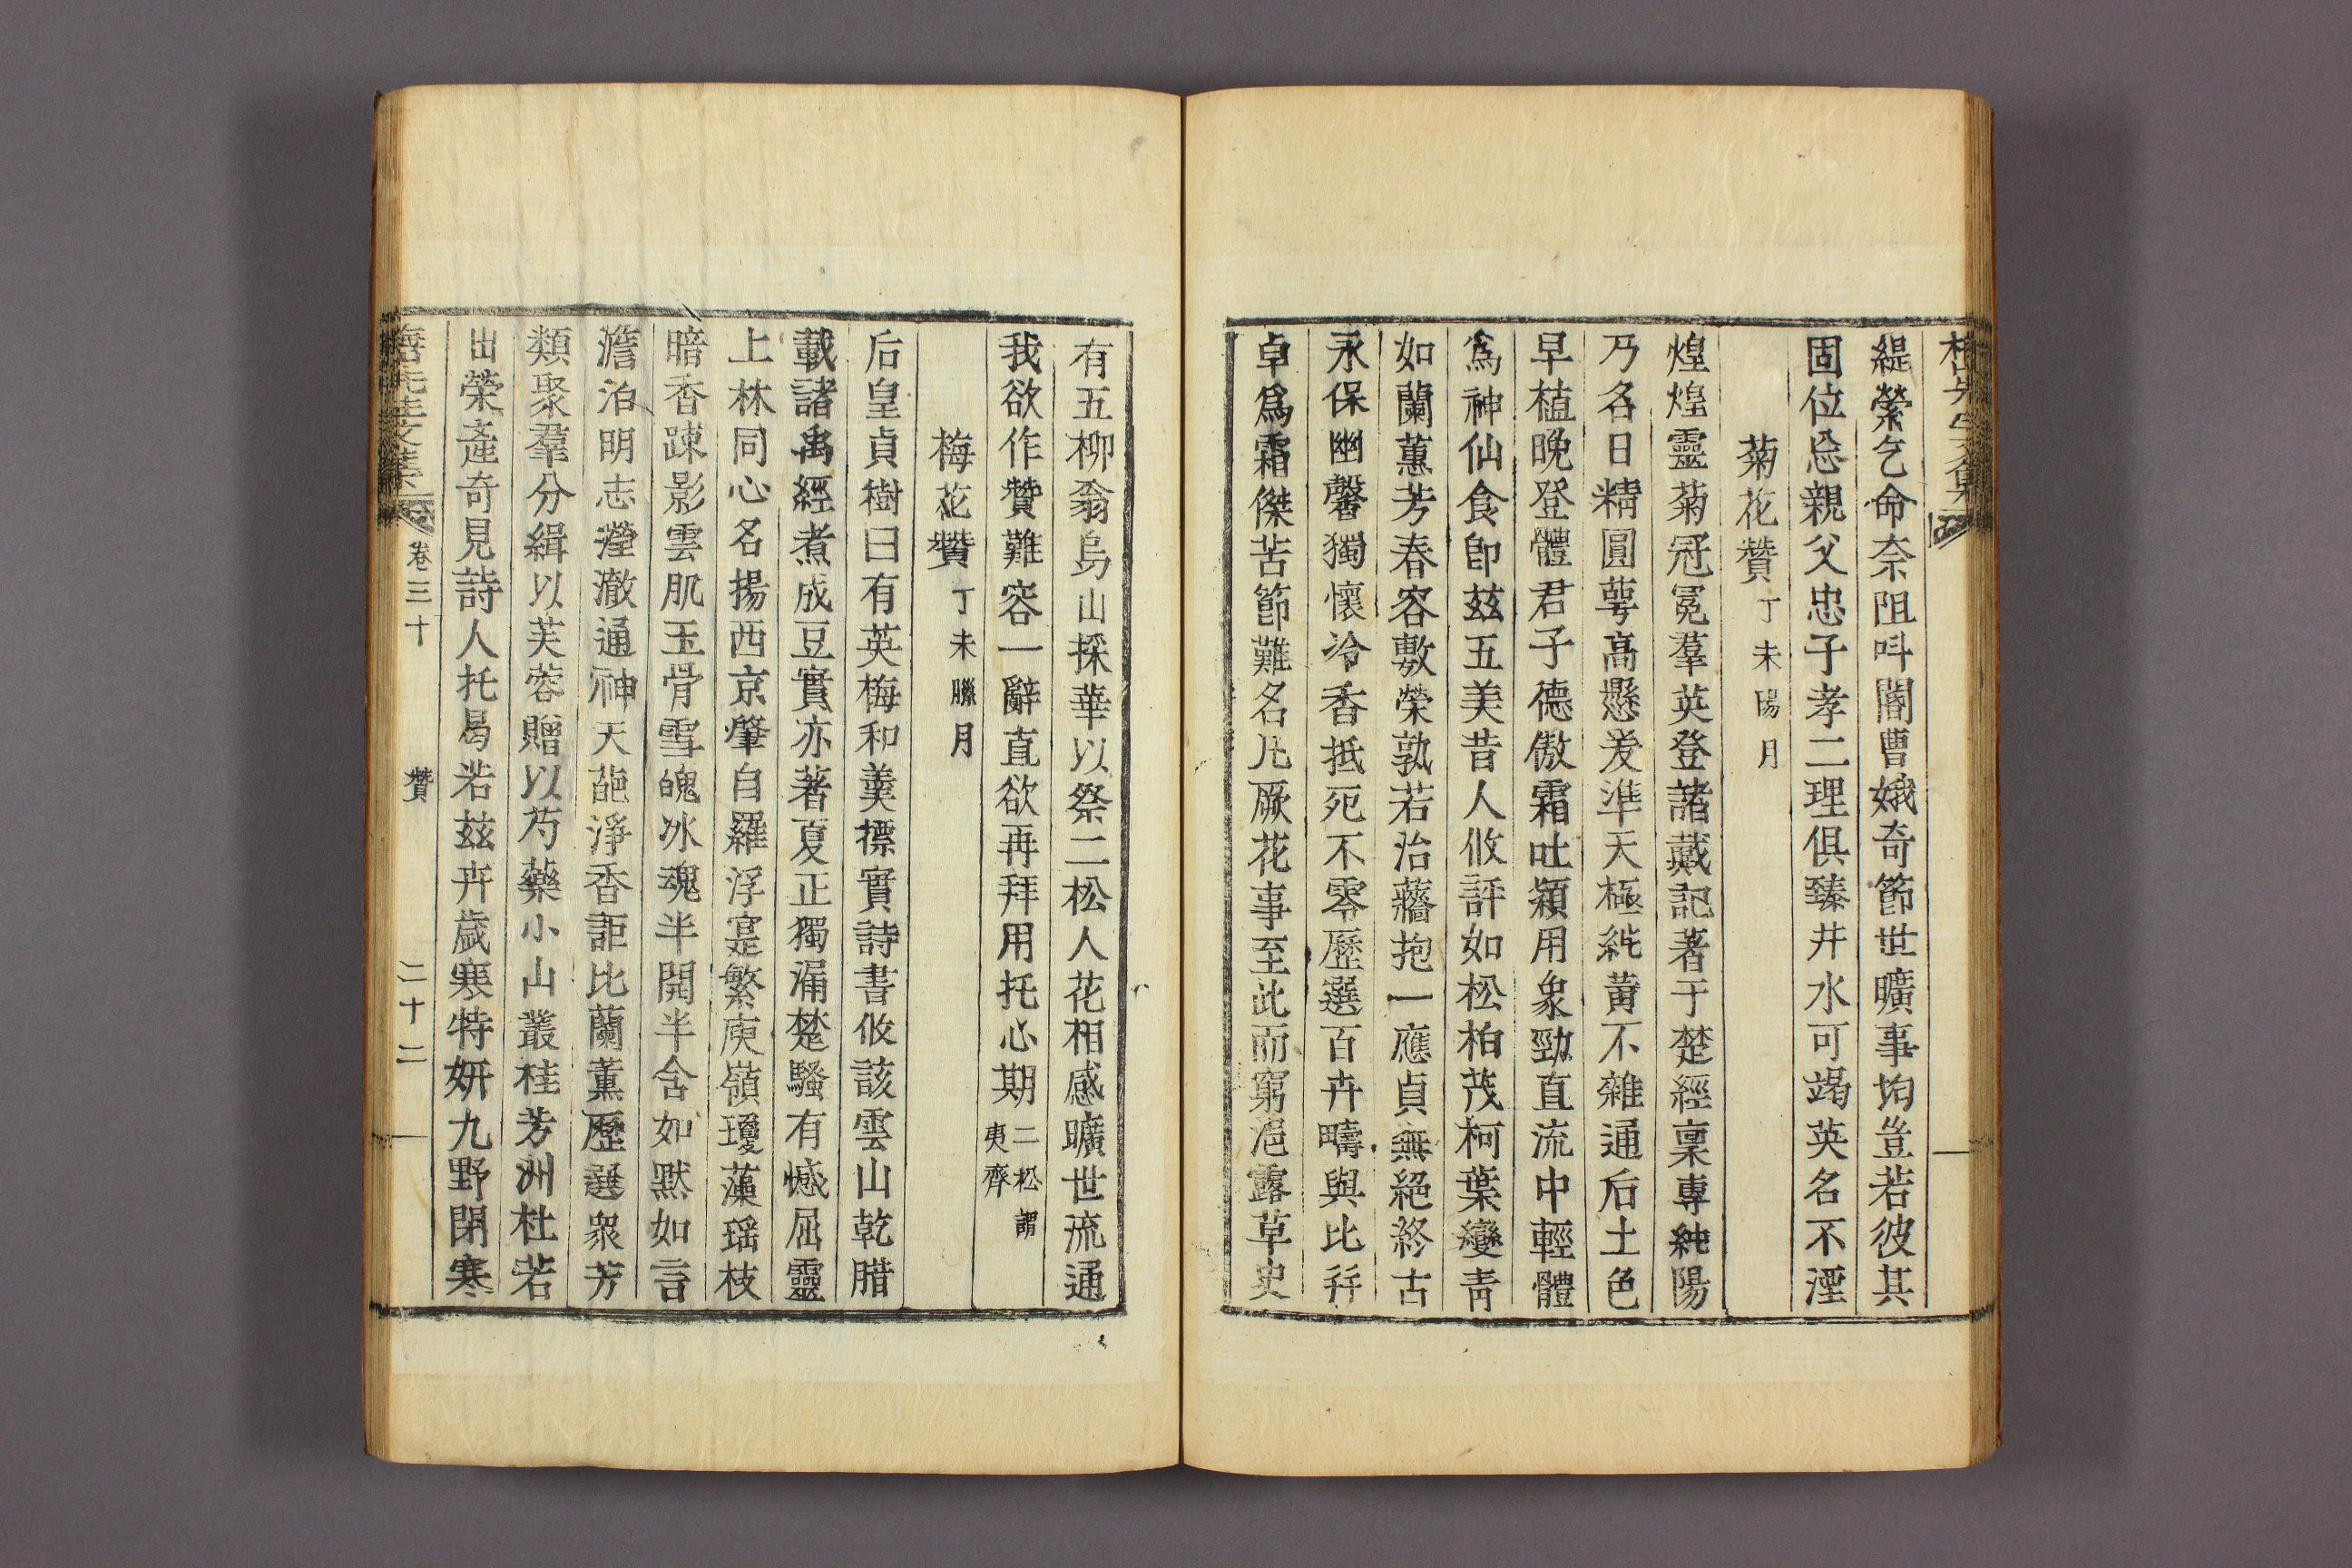 緹縈乞命奈阻呌閽曹娥奇節世曠事均豈若彼其
固位忘親父忠子孝二理俱臻井水可竭英名不湮
菊花贊丁未陽月
煌煌靈菊冠冕羣英登諸戴記著于楚經稟專純陽
乃名日精圓蕚高懸爰準天極純黃不雜通后土色
早植晚登體君子德傲霜吐穎用象勁直流中輕體
爲神仙食卽茲五美昔人攸評如松柏茂柯葉變靑
如蘭蕙芳春容敷榮孰若治蘠抱一應貞無絕終古
永保幽馨獨懷冷香抵死不零歷選百卉疇與比幷
卓爲霜傑苦節難名凡厥花事至此而窮浥露草史
有五柳翁烏山採華以祭二松人花相感曠世流通
我欲作贊難容一辭直欲再拜用托心期二松謂夷齊
梅花贊丁未臘月
后皇貞樹曰有英梅和羹摽實詩書攸該雲山乾腊
載諸禹經煮成豆實亦著夏正獨漏楚騷有憾屈靈
上林同心名揚西京肇自羅浮寔繁庾嶺瓊蘂瑶枝
暗香踈影雲肌玉骨雪魄氷魂半開半含如默如言
澹泊明志瀅澈通神天葩淨香詎比蘭薰歷選衆芳
類聚羣分緝以芙蓉贈以芍藥小山叢桂芳洲杜若
出榮產奇見詩人托曷若茲卉歲寒特姸九野閉寒
先生文集 卷三十 贊 二十二